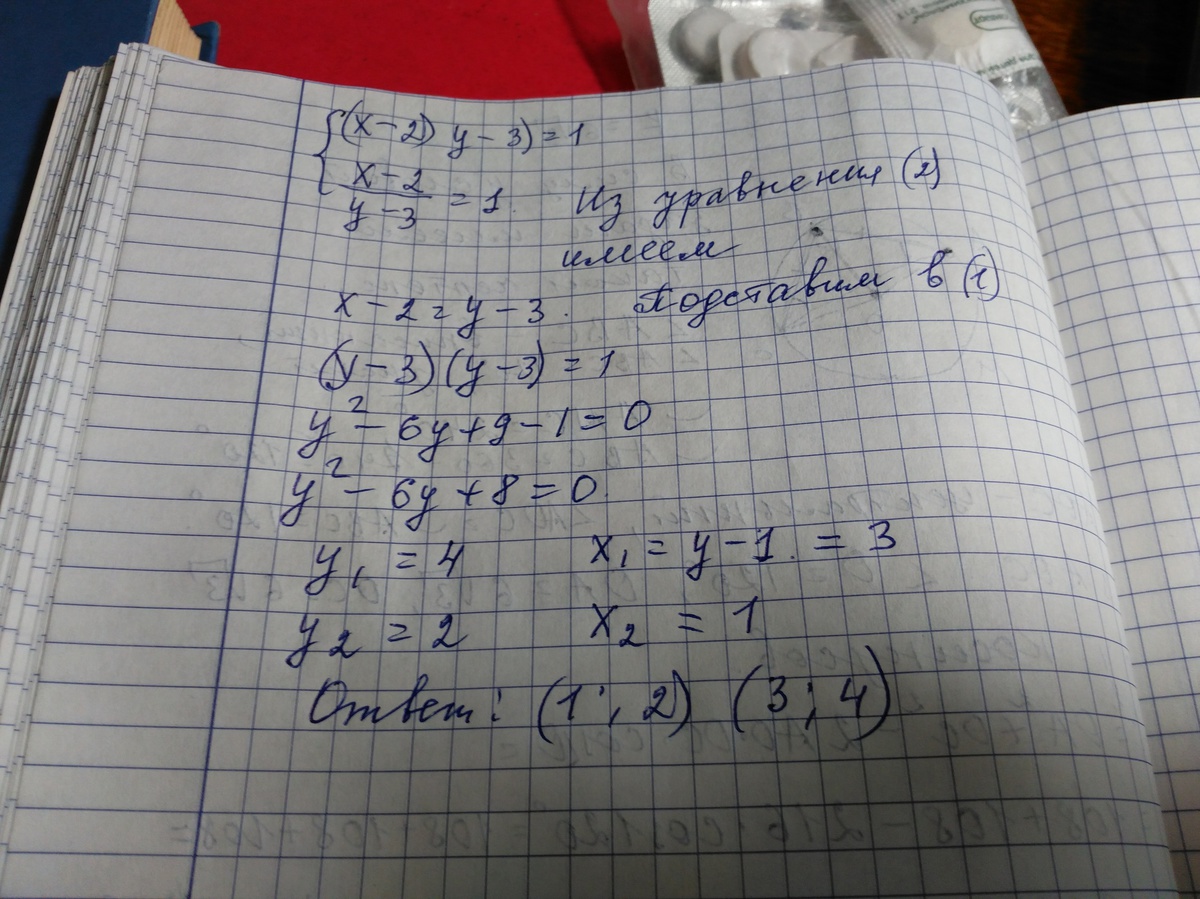 (x-2) y-3)=1
x-2
y-3 = 1. Из уравнения (2)
имеем
x-2=y-3. Подставим в (1)
(y-3)(y-3)=1
y²-6y+9-1=0
y²-6y+8=0.
y₁=4 x₁=y-1.=3
y₂=2 x₂=1
Ответ: (1; 2) (3; 4)